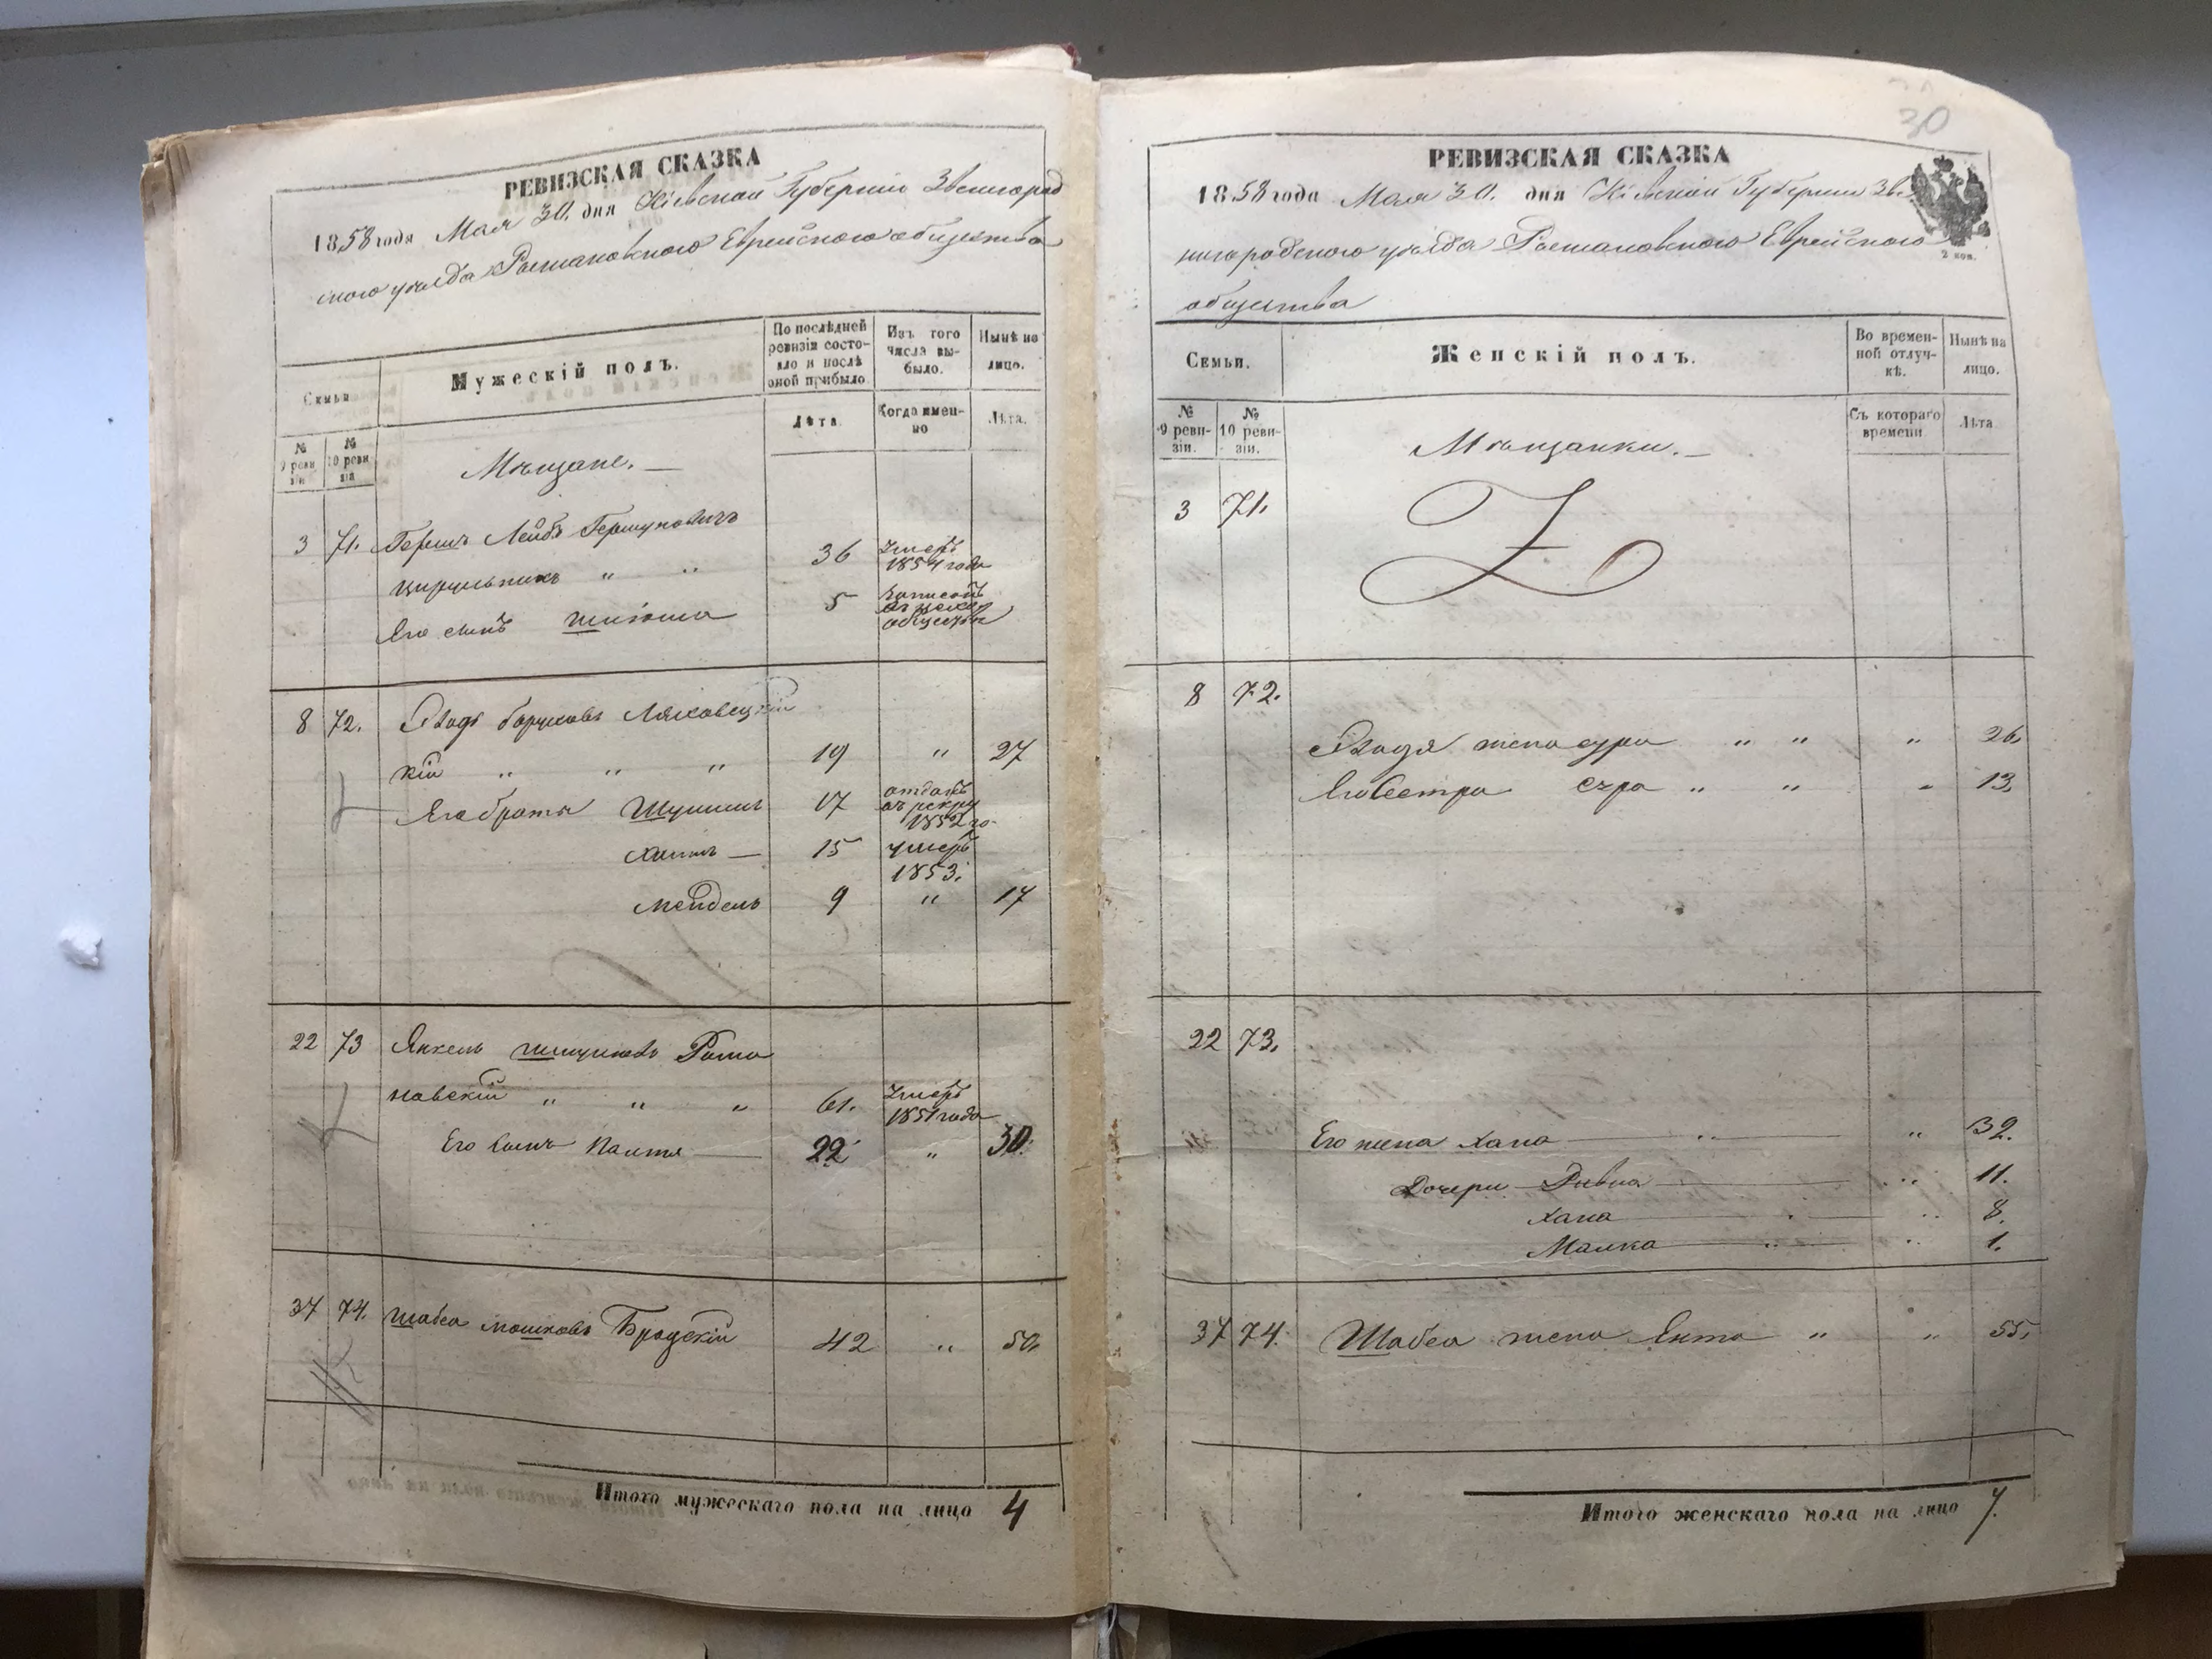 РЕВИЗСКАЯ СКАЗКА
1858 года Мая 30. дня Кіевской Губерніи Звенигород
ского уѣзда Ризмановского Еврейского общества
Семьи
Мужескій полъ.
По послѣдней ревизіи состояло и послѣ оной прибыло
Изъ того числа выбыло.
Нынѣ на лицо.
№ 9 реви зіи
№ 10 реви зіи
Лѣта
Когда имен-но
Лѣта.
Мѣщане.
3 71. Гершъ Лейбъ Гершуновичъ
Цирульникъ " " 36 умеръ 1854 года
Его сынъ 5 записанъ общества
8 72. борухов Ляховецкій
кій " " " 19 " 27
Его братья 17 отданъ въ рекру 1852 го
Хаимъ — 15 умеръ 1853.
Мендель 9 " 17
22 73 Янкель Рома
новскій " " " 61. умеръ 1851 года
Его сынъ 22 " 30.
37 74. Шабса Мошковъ Бродскій 42 " 50.
Итого мужескаго пола на лицо 4
30
РЕВИЗСКАЯ СКАЗКА
1858 года Мая 30. дня Кіевской Губерніи Зве
нигородского уѣзда Ризмановского Еврейского
2 коп.
общества
Семьи.
Женскій полъ.
Во времен-ной отлуч-кѣ.
Нынѣ на лицо.
№ 9 реви-зіи.
№ 10 реви-зіи.
Съ котораго времени
Лѣта
Мѣщанки.
3 71.
8 72.
жена сура " " " 26.
Его сестра " " " 13.
22 73.
Его жена Хана " " 32.
Дочери Ривка " 11.
Хана " 8.
Малка " " 1.
37 74. Шабса жена Ента " " 55.
Итого женскаго пола на лицо 7.